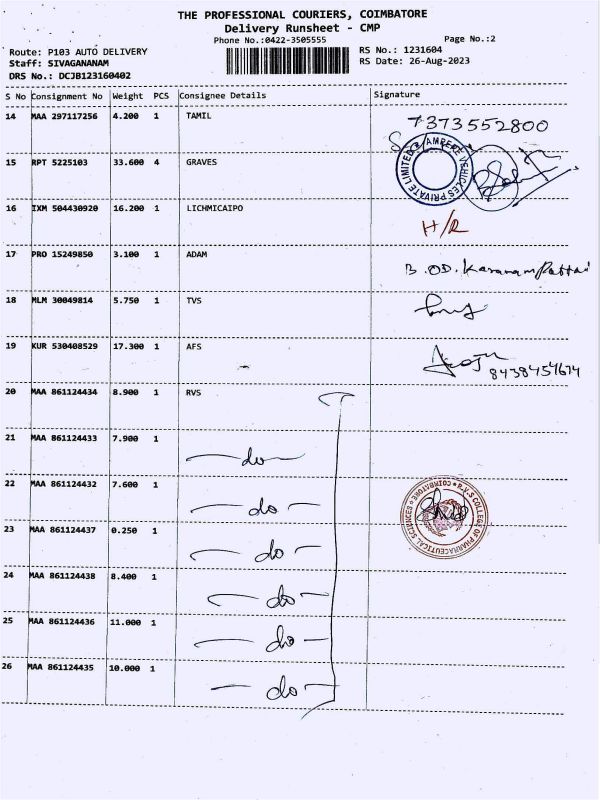 THE PROFESSIONAL COURIERS, COIMBATORE
Delivery Runsheet - CMP
Phone No.:0422-3505555
Page No.:2
Route: P103 AUTO DELIVERY
RS No.: 1231604
Staff: SIVAGANANAM
RS Date: 26-Aug-2023
DRS No.: DCJB123160402
S No Consignment No Weight PCS Consignee Details Signature
14 MAA 297117256 4.200 1 TAMIL
7373552800
15 RPT 5225103 33.600 4 GRAVES
AMPERE VEHICLES PRIVATE LIMITED
16 IXM 504430920 16.200 1 LICHMICAIPO
H/R
17 PRO 15249850 3.100 1 ADAM
B.OD.
18 MLM 30049814 5.750 1 TVS
19 KUR 530408529 17.300 1 AFS
8438457674
20 MAA 861124434 8.900 1 RVS
21 MAA 861124433 7.900 1
— do —
22 MAA 861124432 7.600 1
— do —
R.V.S COLLEGE OF PHARMACEUTICAL SCIENCES * COIMBATORE *
23 MAA 861124437 0.250 1
— do —
24 MAA 861124438 8.400 1
— do —
25 MAA 861124436 11.000 1
— do —
26 MAA 861124435 10.000 1
— do —